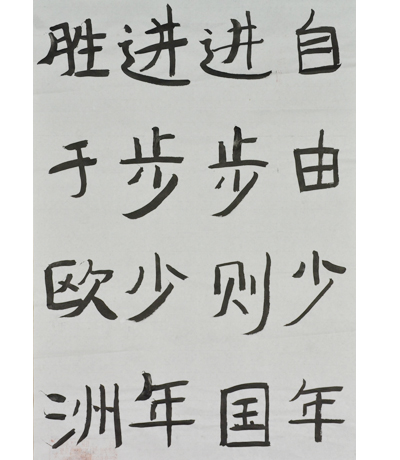 自由少年
进步则国
进步少年
胜于欧洲